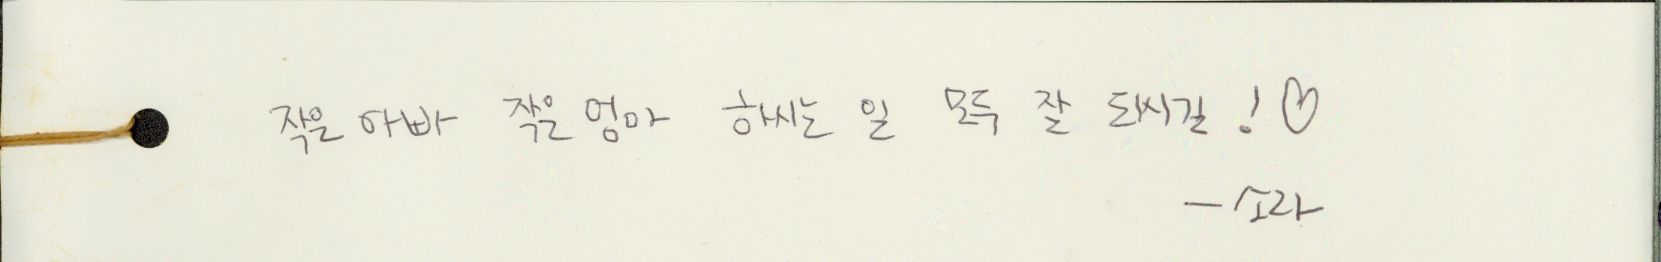 작은 아빠 작은 엄마 하시는 일 모두 잘 되시길 ! ♡
- 소라